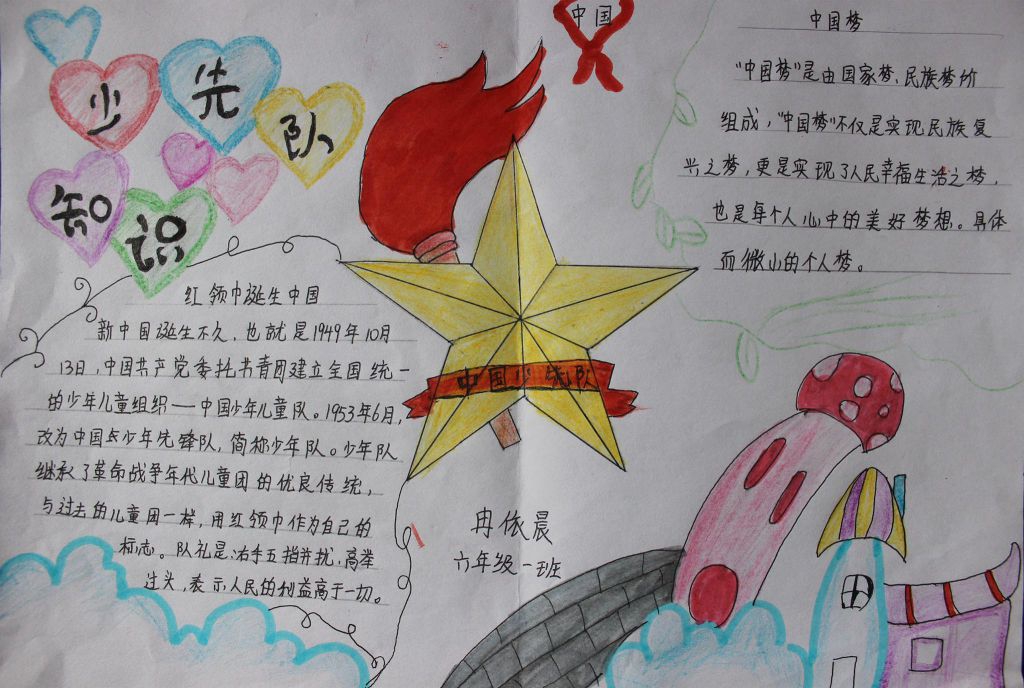 少先队
知识
红领巾诞生中国
新中国诞生不久，也就是1949年10月
13日，中国共产党委托书青团建立全国统一
的少年儿童组织——中国少年儿童队。1953年6月，
改为中国少年先锋队，简称少年队。少年队
继承了革命战争年代儿童团的优良传统，
与过去的儿童团一样，用红领巾作为自己的
标志。队礼是：右手五指并拢，高举
过头，表示人民的利益高于一切。
中国
中国少先队
冉依晨
六年级一班
中国梦
“中国梦”是由国家梦、民族梦所
组成，“中国梦”不仅是实现民族复
兴之梦，更是实现了人民幸福生活之梦，
也是每个人心中的美好梦想。具体
而微小的个人梦。